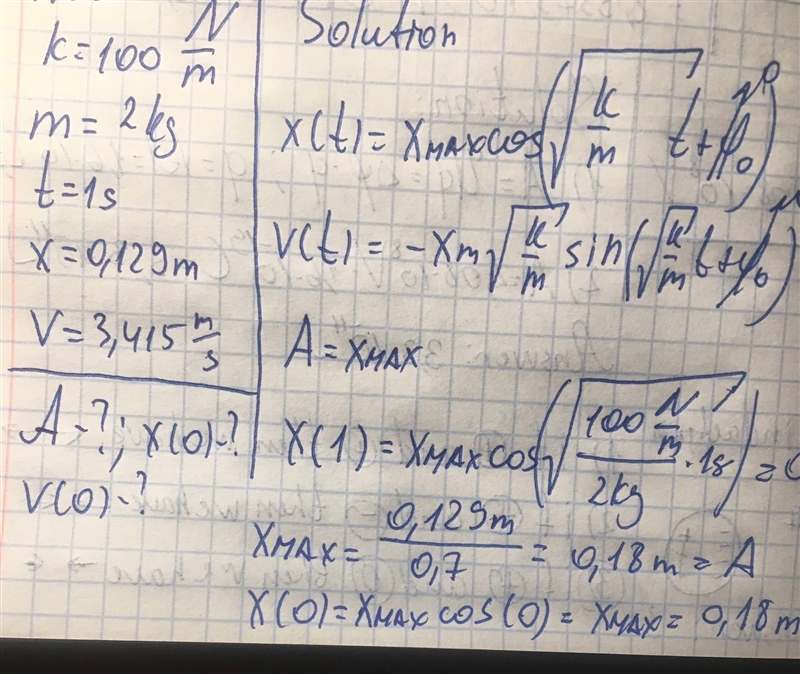 k=100 N/m
m= 2kg
t=1s
x=0,129m
V=3,415 m/s
A-?; x(0)-?
V(0)-?
Solution
x(t)= xMAX cos(√(k/m) t+φ₀)
V(t)= -xm√(k/m) sin(√(k/m) t+φ₀)
A=xMAX
x(1)= xMAX cos(√(100 N/m / 2kg) · 1s) =
xMAX= 0,129m / 0,7 = 0,18m = A
x(0)=xMAX cos(0)= xMAX= 0,18m